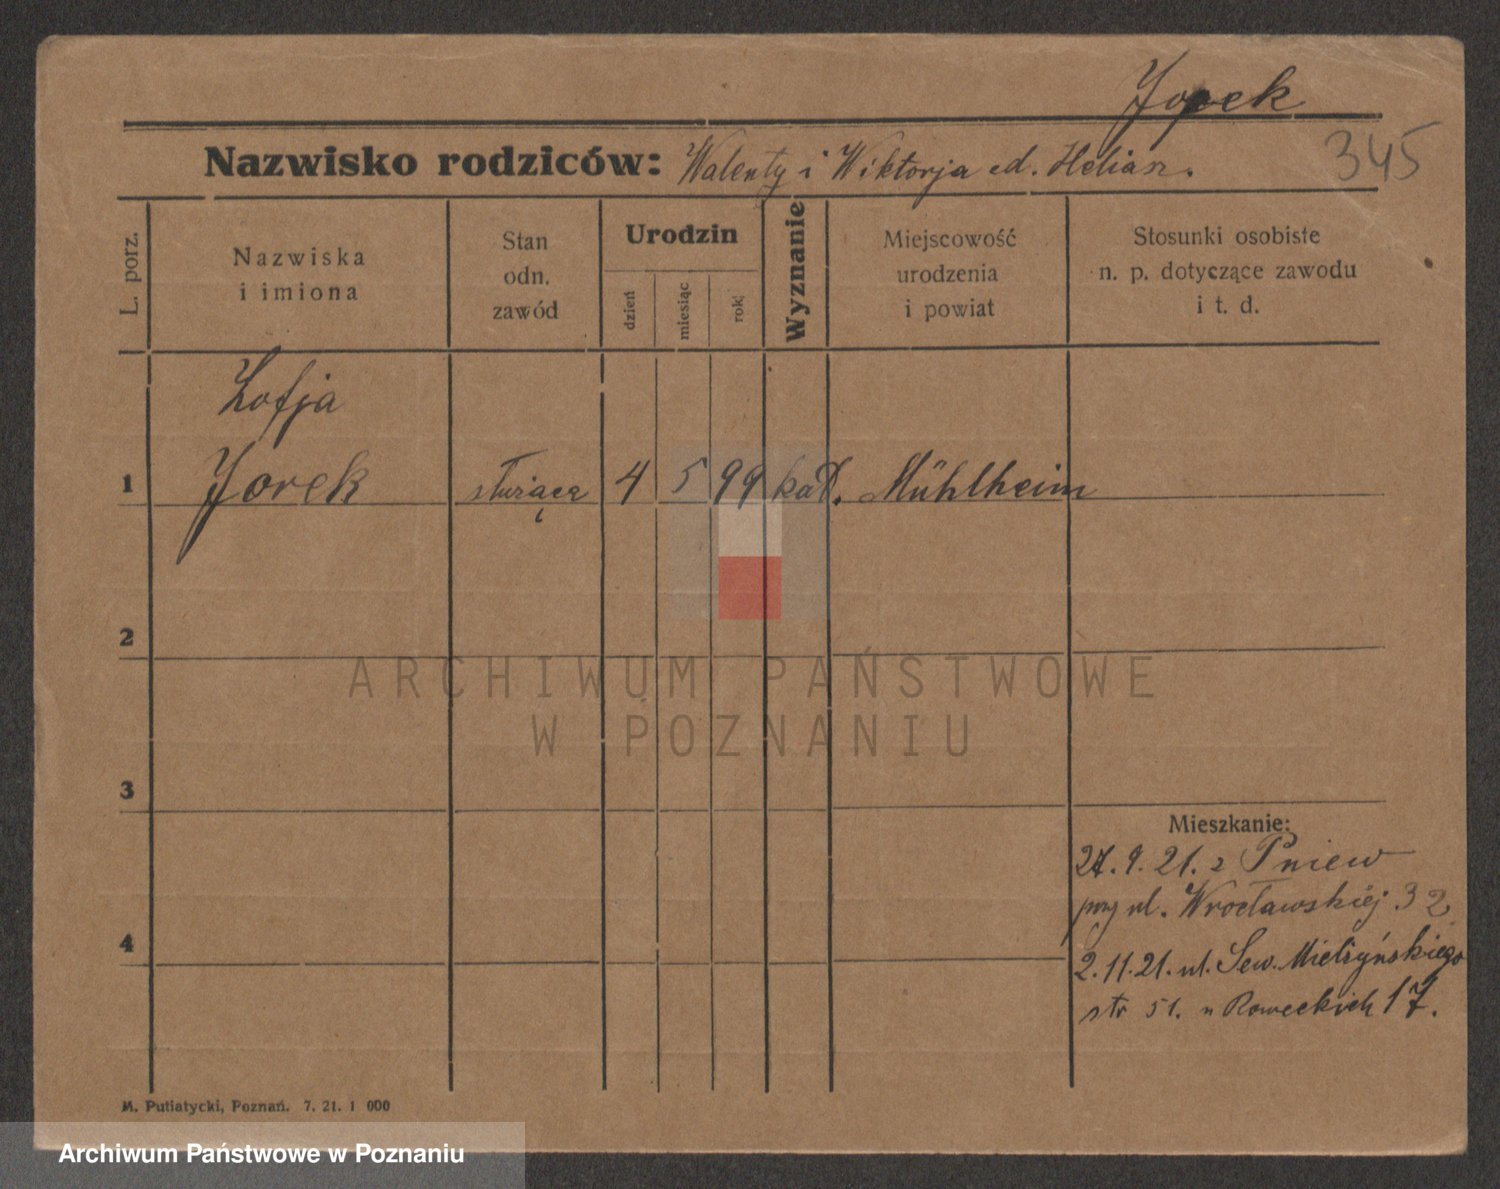 Jopek
Nazwisko rodziców: Walenty i Wiktorja Heliasz.
345
L. porz.
Nazwiska
i imiona
Stan
odn.
zawód
Urodzin
dzień
miesiąc
rok
Wyznanie
Miejscowość
urodzenia
i powiat
Stosunki osobiste
n. p. dotyczące zawodu
i t. d.
Zofja
1 Jorek służąca 4 5 99 kat. Mühlheim
2
ARCHIWUM PAŃSTWOWE
W POZNANIU
3
Mieszkanie:
9. 21. z Pniew
przy ul. Wrocławskiej 32
4
2. 11. 21. ul. Sew. Mielżyńskiego
str 51. 17.
M. Putiatycki, Poznań. 7. 21. 1 000
Archiwum Państwowe w Poznaniu